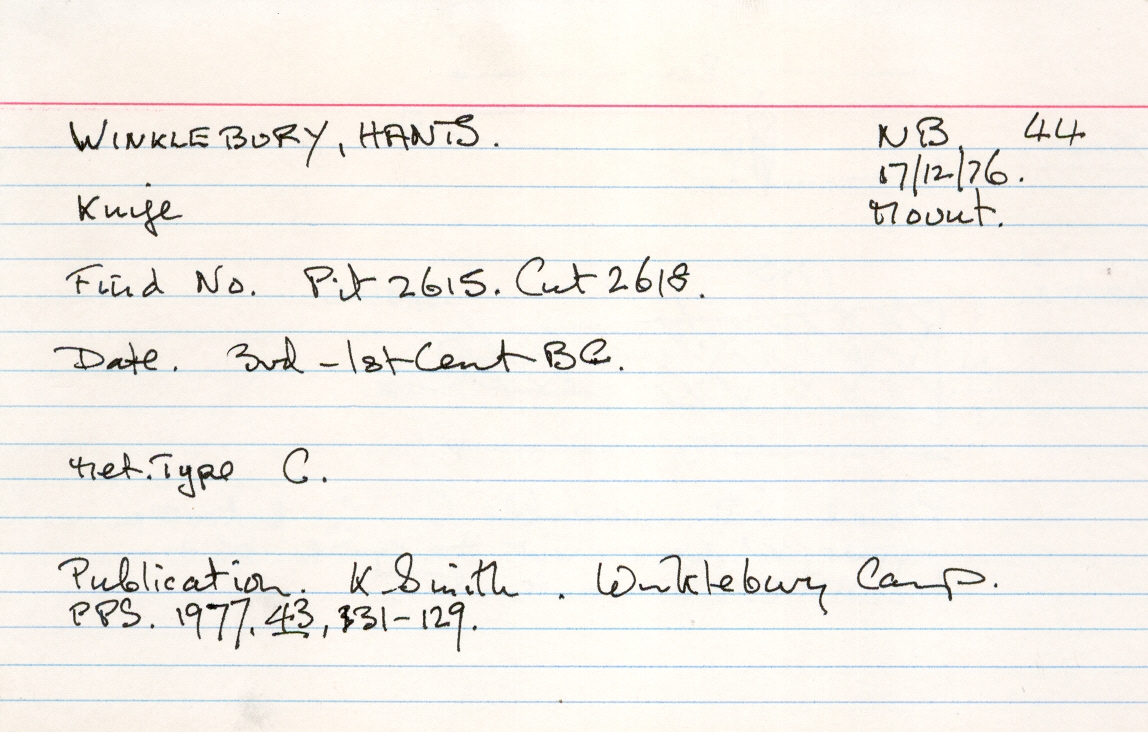 WINKLEBURY, HANTS. NB 44
17/12/76.
Knife Mount.
Find No. Pit 2615. Cut 2618.
Date. 3rd - 1st Cent BC.
Met. Type C.
Publication. K Smith. Winklebury Camp.
PPS. 1977. 43, 31-129.